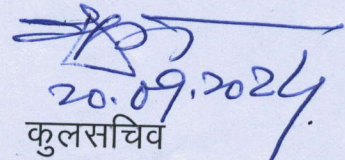 20.09.2024
कुलसचिव